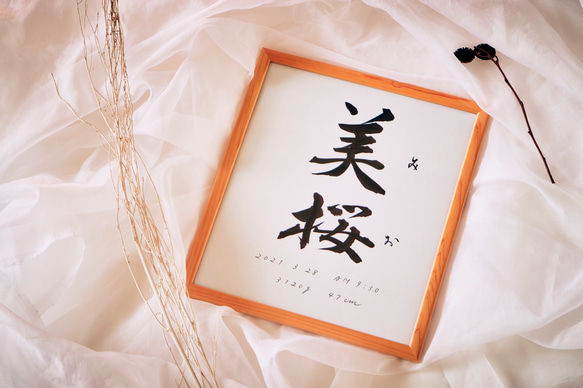 美 み
桜 お
2021 3 28 AM 9:30
3120g 47cm